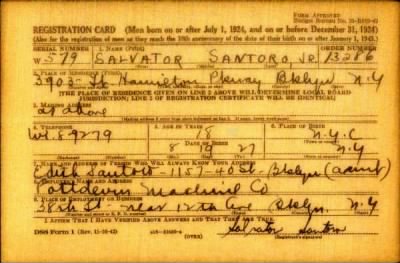 FORM APPROVED
REGISTRATION CARD (Men born on or after July 1, 1924, and on or before December 31, 1924)
(Also for the registration of men as they reach the 18th anniversary of the date of their birth on or after January 1, 1943.)
SERIAL NUMBER 1. NAME (Print) ORDER NUMBER
W 579 SALVATOR SANTORO, JR. 13286
2. PLACE OF RESIDENCE (Print)
3903 Ft. Hamilton Pkway Bklyn N.Y
[THE PLACE OF RESIDENCE GIVEN ON LINE 2 ABOVE WILL DETERMINE LOCAL BOARD
JURISDICTION; LINE 2 OF REGISTRATION CERTIFICATE WILL BE IDENTICAL]
3. MAILING ADDRESS
as above
4. TELEPHONE 5. AGE IN YEARS 6. PLACE OF BIRTH
18 N.Y.C
DATE OF BIRTH
8 10 27 N.Y
7. NAME AND ADDRESS OF PERSON WHO WILL ALWAYS KNOW YOUR ADDRESS
Edith Santoro - 1157-40 St. Bklyn (aunt)
8. EMPLOYER'S NAME AND ADDRESS
Potdevin Machine Co
9. PLACE OF EMPLOYMENT OR BUSINESS
38th St - near 12th Ave Bklyn. N.Y
I AFFIRM THAT I HAVE VERIFIED ABOVE ANSWERS AND THAT THEY ARE TRUE.
DSS Form 1 (Rev. 11-16-42) (OVER)
Salvator Santoro